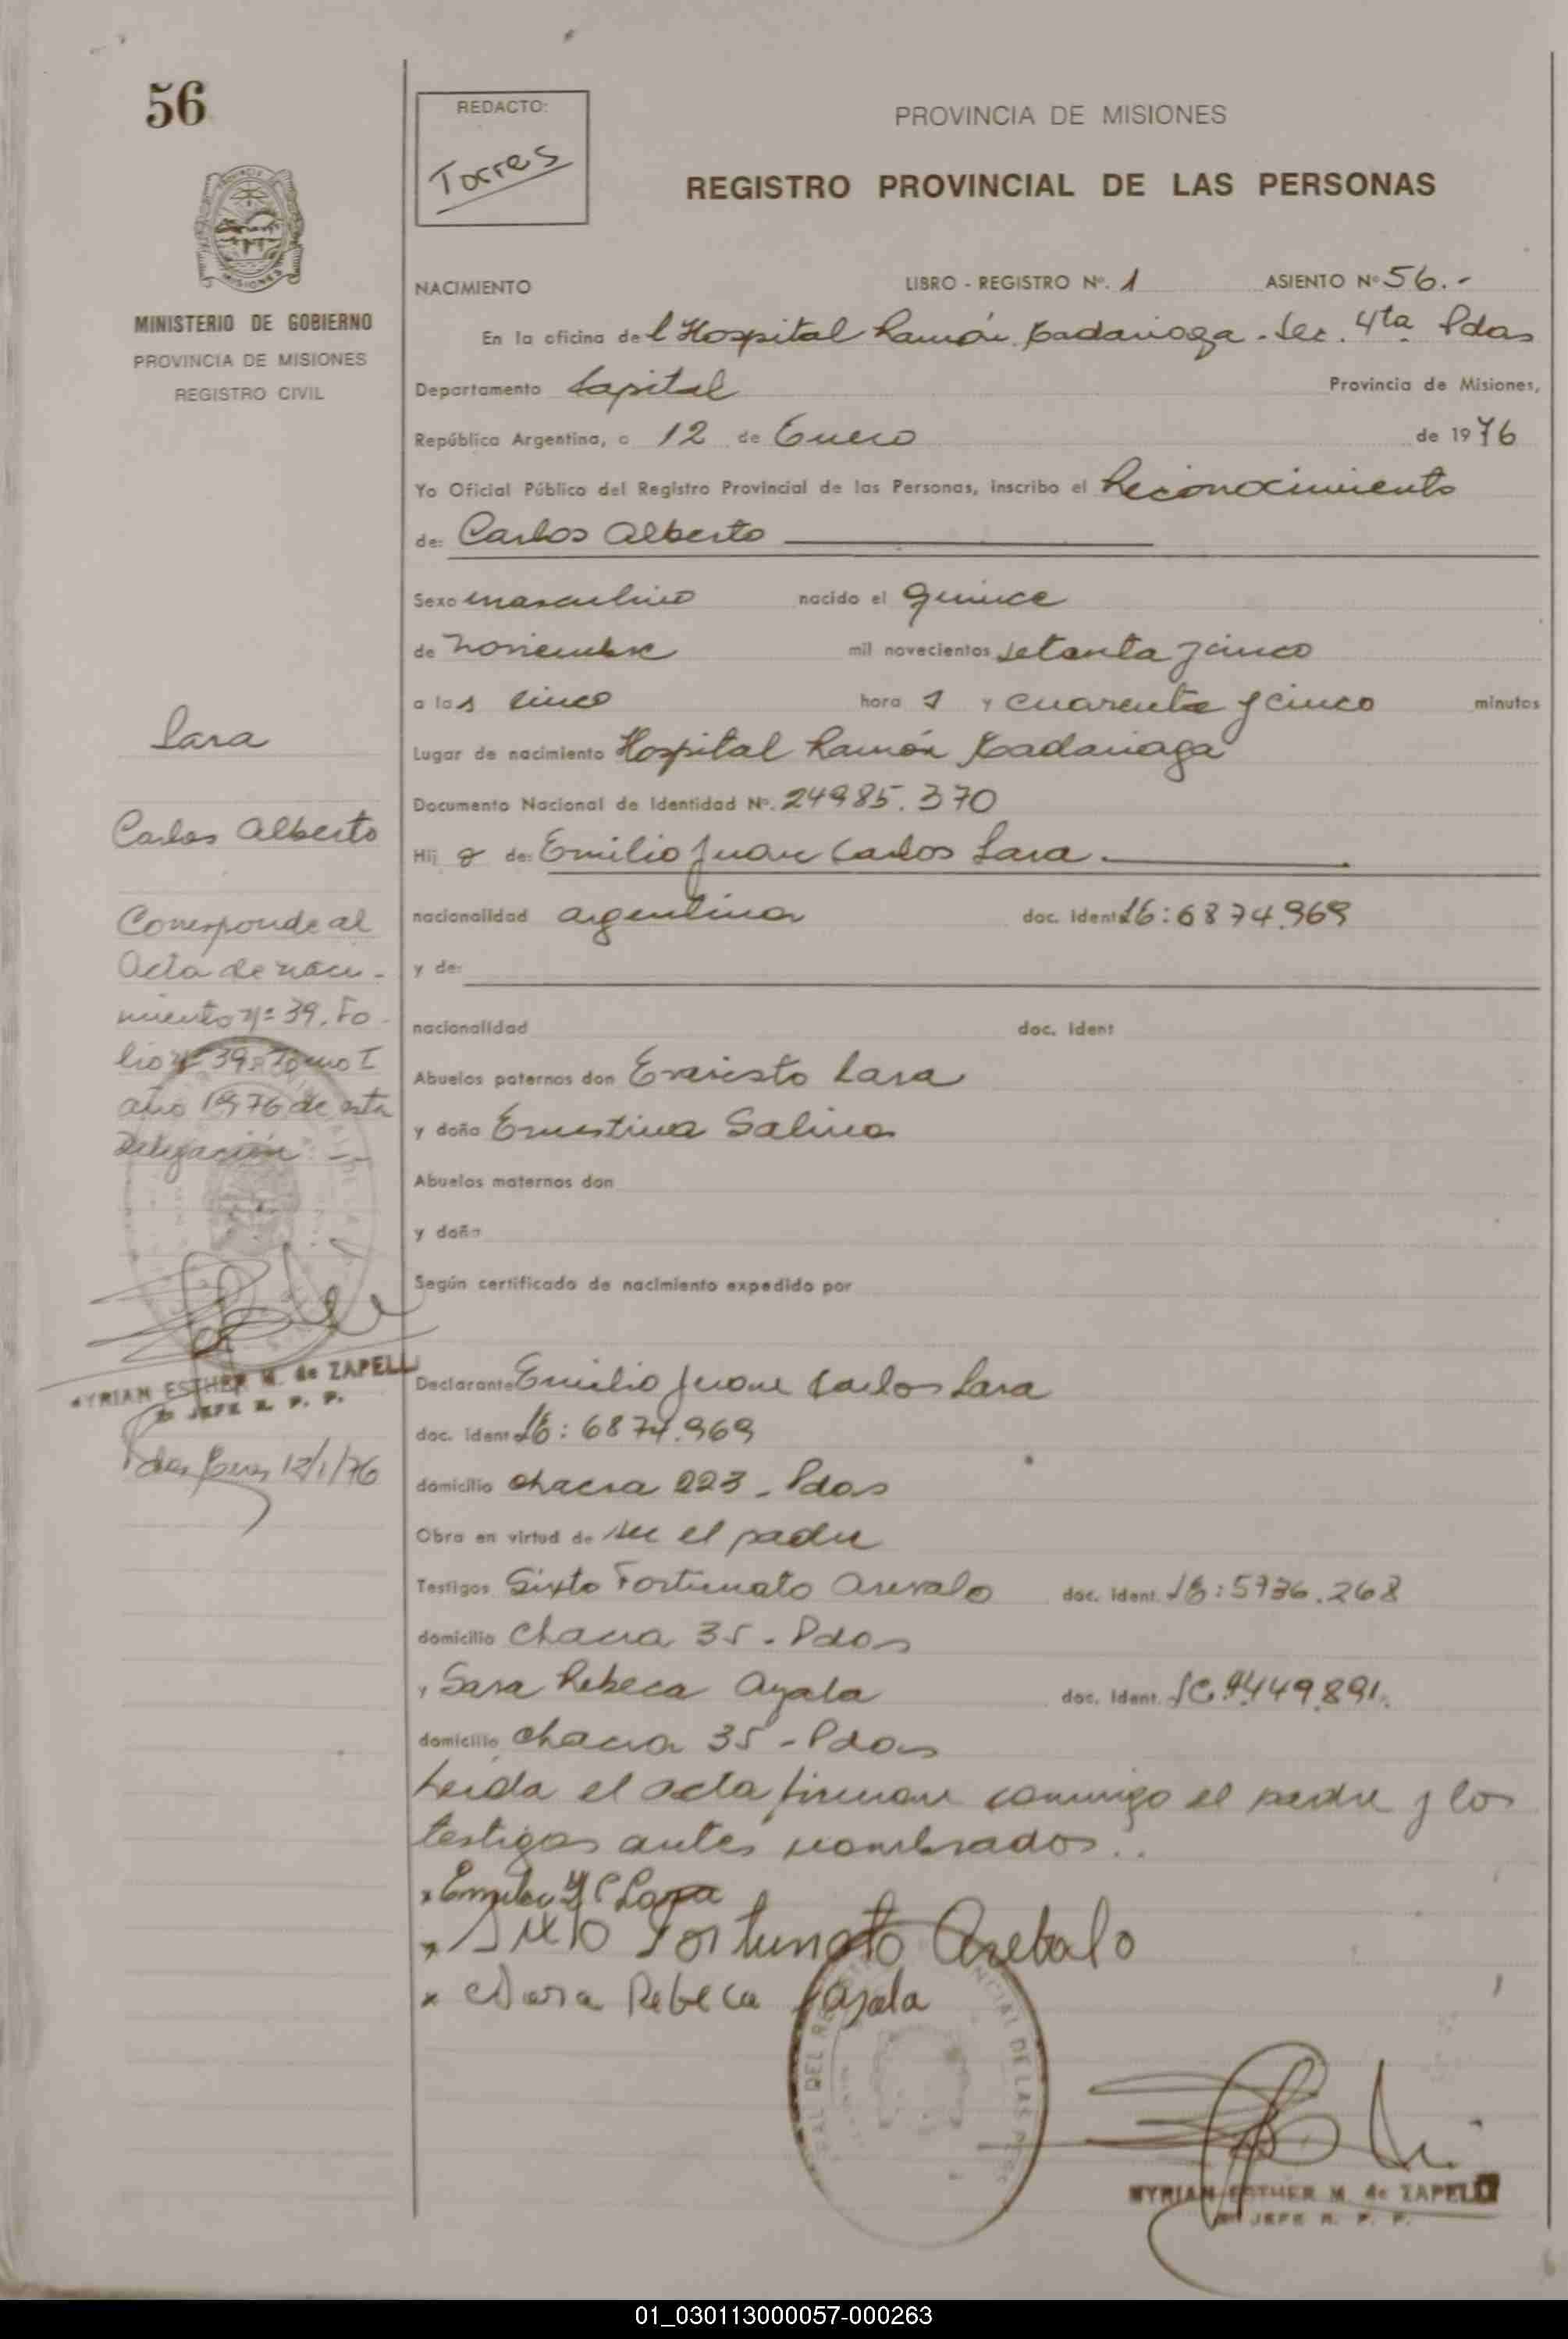 56
REDACTO:
Torres
PROVINCIA DE MISIONES
REGISTRO PROVINCIAL DE LAS PERSONAS
MINISTERIO DE GOBIERNO
PROVINCIA DE MISIONES
REGISTRO CIVIL
NACIMIENTO LIBRO - REGISTRO Nº. 1 ASIENTO Nº 56.-
En la oficina del Hospital Ramón Madariaga. Sec. 4ta. Pdas
Departamento Capital Provincia de Misiones,
República Argentina, a 12 de Enero de 1976
Yo Oficial Público del Registro Provincial de las Personas, inscribo el Reconocimiento
de: Carlos Alberto
Sexo masculino nacido el quince
de noviembre mil novecientos setenta y cinco
a las cinco hora s y cuarenta y cinco minutos
Lugar de nacimiento Hospital Ramón Madariaga
Documento Nacional de Identidad Nº. 24985.370
Hij o de: Emilio Juan Carlos Lara.
nacionalidad argentina doc. ident 6874.969
y de:
nacionalidad doc. ident
Abuelos paternos don Evaristo Lara
y doña Ernestina Salinas
Abuelos maternos don
y doña
Según certificado de nacimiento expedido por
Declarante Emilio Juan Carlos Lara
doc. ident 6874.969
domicilio chacra 223 - Pdas
Obra en virtud de ser el padre
Testigos Sixto Fortunato Arevalo doc. ident. 5736.268
domicilio chacra 35 - Pdas
y Sara Rebeca Ayala doc. ident. 449.891.
domicilio chacra 35 - Pdas
Leida el acta firman conmigo el padre y los
testigos antes nombrados..
Emilio J C Lara
x Sixto Fortunato Arebalo
x Sara Rebeca Ayala
MYRIAN ESTHER M. de ZAPELLI
JEFE R. P. P.
Lara
Carlos Alberto
Corresponde al
Acta de naci-
miento nº 39. Fo-
lio nº 39 Tomo I
año 1976 de esta
Delegación. --
MYRIAN ESTHER M. de ZAPELLI
JEFE R. P. P.
12/1/76
01_030113000057-000263